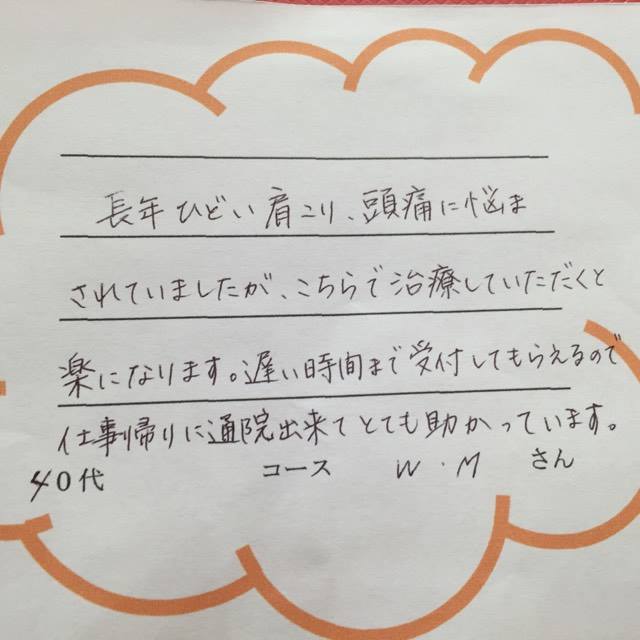 長年ひどい肩こり、頭痛に悩ま
されていましたが、こちらで治療していただくと
楽になります。遅い時間まで受付してもらえるので
仕事帰りに通院出来てとても助かっています。
40代 コース W.M さん